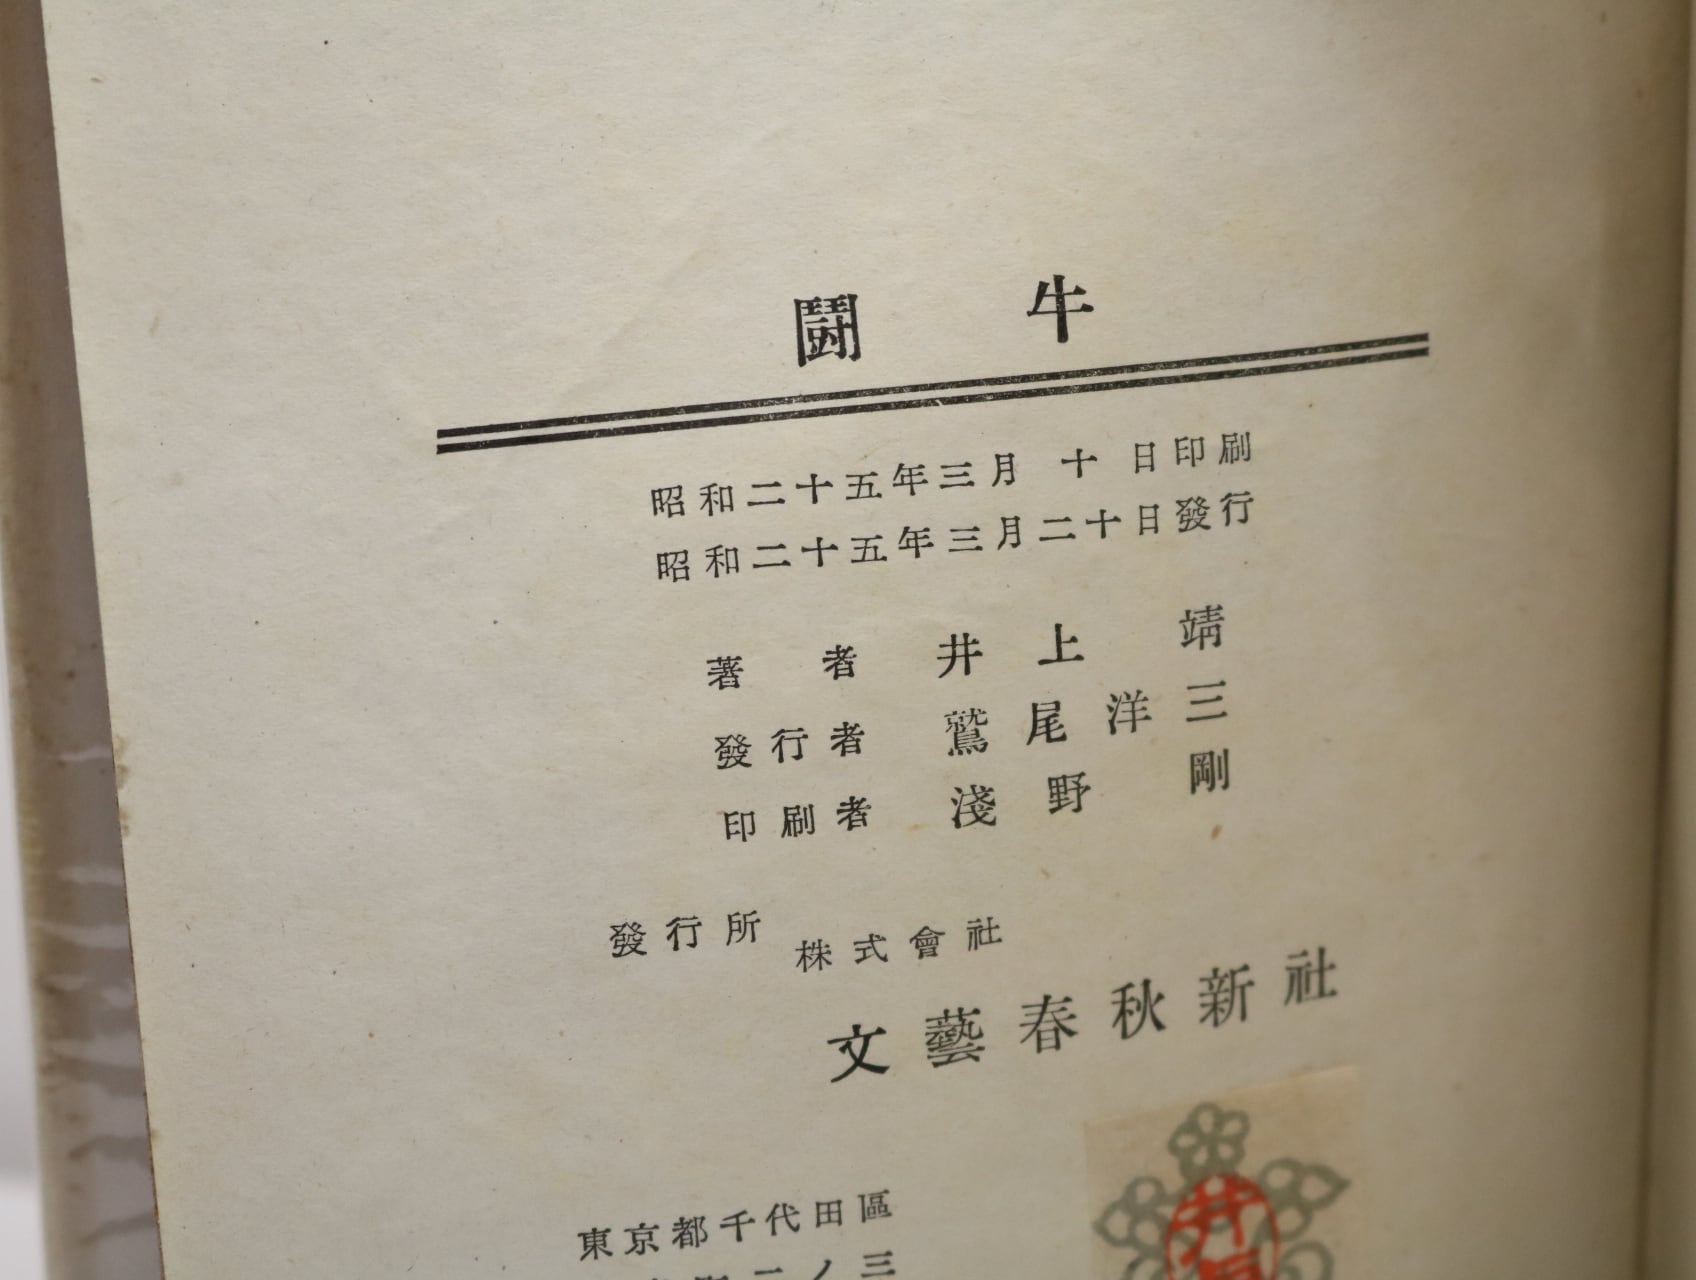 鬪牛
昭和二十五年三月十日印刷
昭和二十五年三月二十日發行
著者 井上靖
發行者 鷲尾洋三
印刷者 淺野剛
發行所 株式會社
文藝春秋新社
東京都千代田區
二ノ三
井